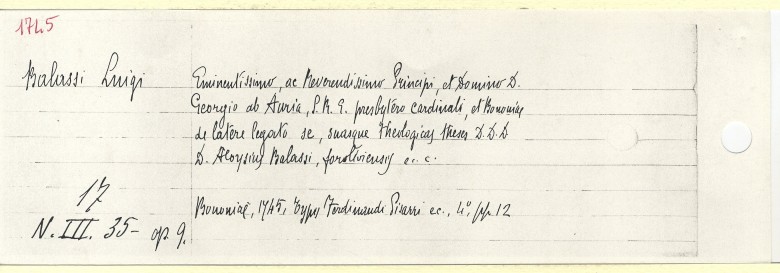 1745
Balassi Luigi
Eminentissimo, ac Reverendissimo Principi, et Domino D.
Georgio ab Auria, S. R. E. presbytero cardinali, et Bononiae
de latere legato se, suasque theologicas theses D.D.D
D. Aloysius Balassi, foroliviensis ec. c.
Bononiae, 1745, typis Ferdinandi Pisarri ec., 4º, pp. 12
17
N. III. 35- op. 9.